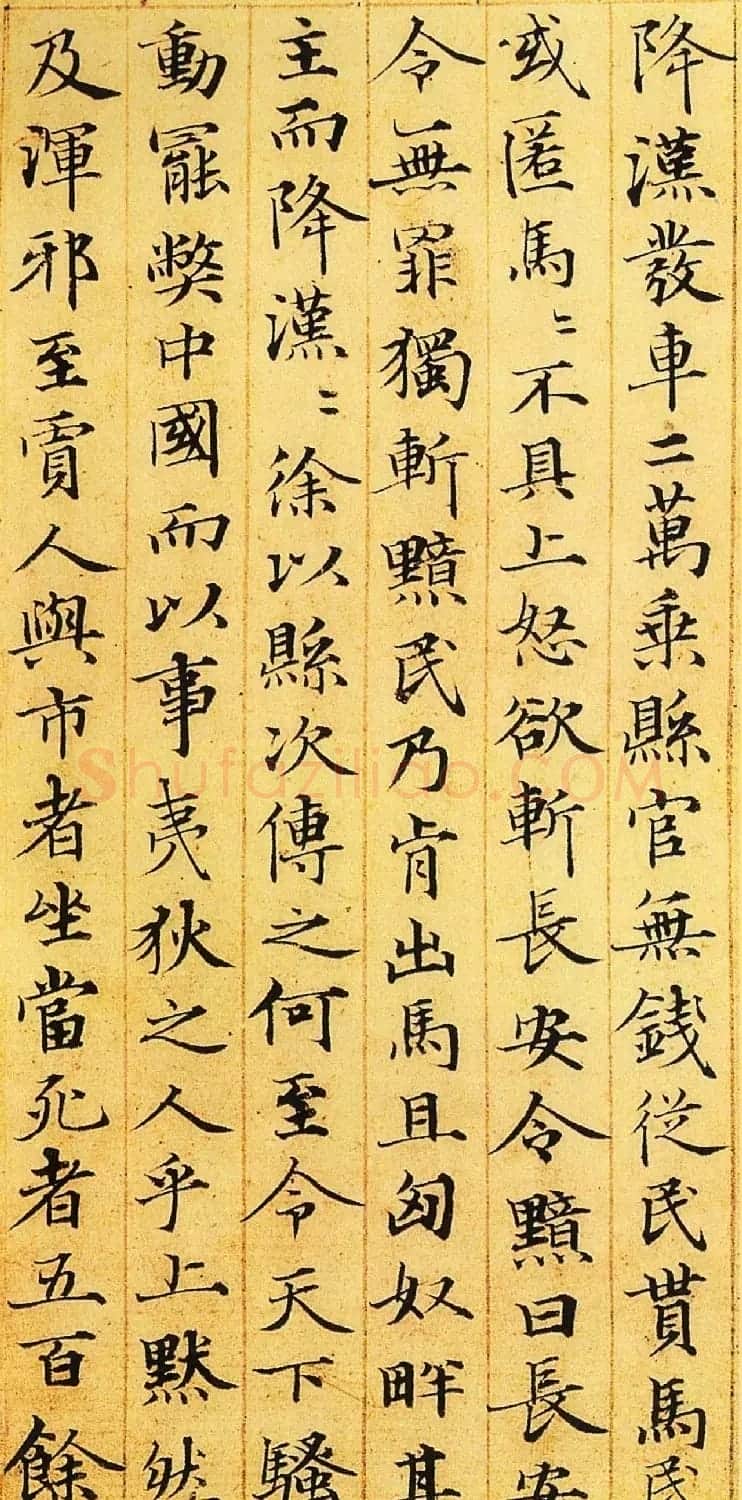 降漢發車二萬乗縣官無錢從民貰馬民
或匿馬〻不具上怒欲斬長安令黯曰長安
令無罪獨斬黯民乃肯出馬且匈奴畔其
主而降漢〻徐以縣次傳之何至令天下騷
動罷弊中國而以事夷狄之人乎上黙然
及渾邪至賈人與市者坐當死者五百餘
Shufaziliao.COM